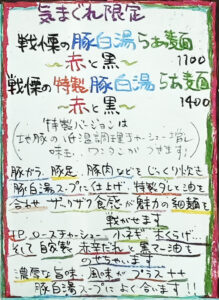 気まぐれ限定
戦慄の豚白湯らぁ麺
〜赤と黒〜 1100
戦慄の特製豚白湯らぁ麺
〜赤と黒〜 1400
特製バージョンは
地豚の低温調理チャーシュー増し
味玉、ワンタンがつきます
豚ガラ、豚足、豚肉などをじっくり炊き
豚白湯スープに仕上げ、特製タレと油を
合わせ、ザクザク食感が魅力の細麺を
泳がせます
T.P.ロースチャーシュー 小ネギ きくらげ
そして自家製 赤辛だれと黒マー油を
のせちゃいます
濃厚な旨味、風味がプラスされ
豚白湯スープによく合います!!